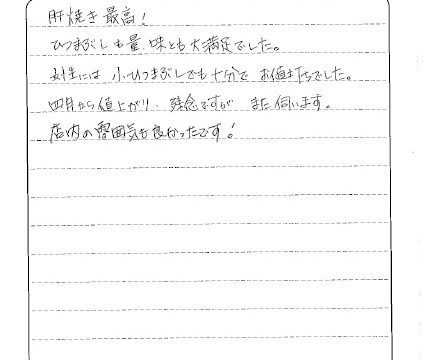 肝焼き最高！
ひつまぶしも量、味とも大満足でした。
女性には 小ひつまぶしでも十分で お値打ちでした。
四月から値上がり、残念ですが また伺います。
店内の雰囲気も良かったです！